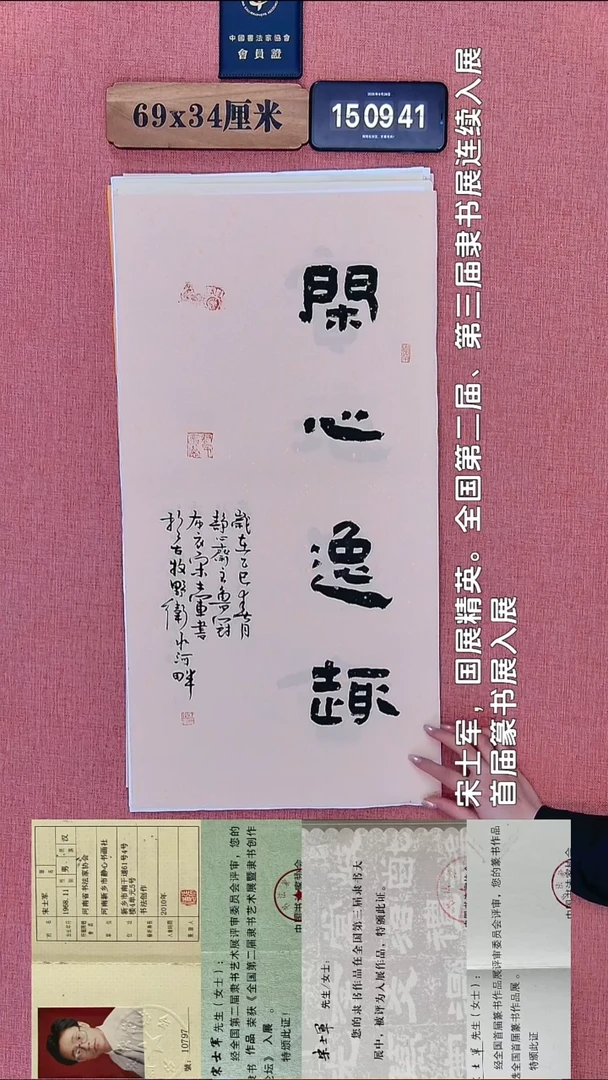 中國書法家協會
會員證
69x34厘米
15 09 41
宋士军，国展精英。全国第二届、第三届隶书展连续入展
首届篆书展入展
閑心逸趣
歲在乙巳
宋士軍書
於古牧野衛水河畔
宋士军
1968.11 男 汉
河南省书法家协会
河南新乡市静心书画社
新乡市南干道61号4号
楼4单元5号
书法创作
2010年
號：10797
宋士军 先生（女士）：
经全国第二届隶书艺术展评审委员会评审，您的
隶书 作品 荣获《全国第二届隶书艺术展暨隶书创作
论坛》 入展 。
特颁此证！
宋士军 先生/女士：
您的隶书作品在全国第三届隶书大
展中，被评为入展作品，特颁此证。
士军 先生（女士）：
经全国首届篆书作品展评审委员会评审，您的篆书作品
全国首届篆书作品展。
特颁此证